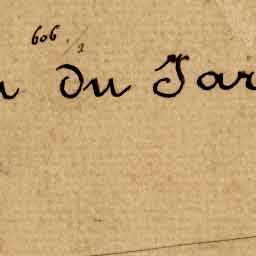 606
du Jar